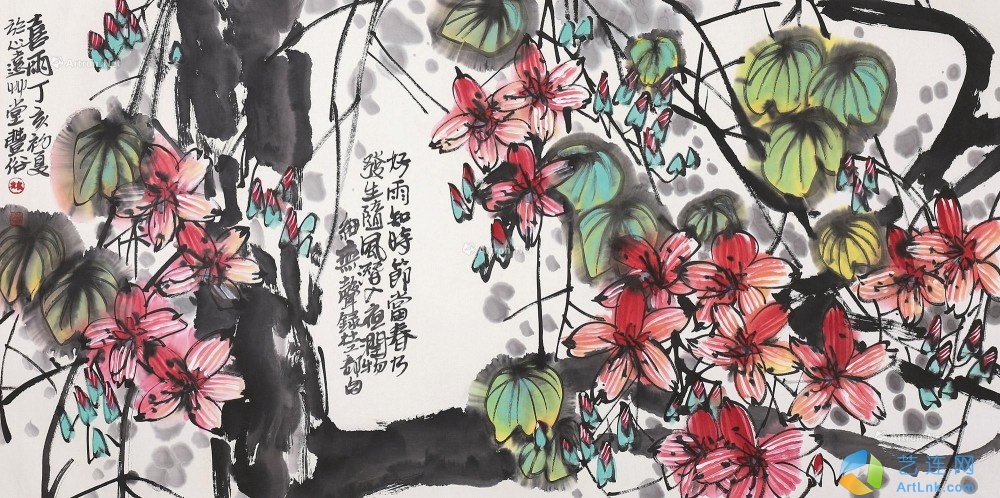 好雨知時節當春乃
發生隨風潛入夜潤物
細無聲錄杜甫句
喜雨丁亥初夏
於心遠堂
艺连网
ArtLnk.com